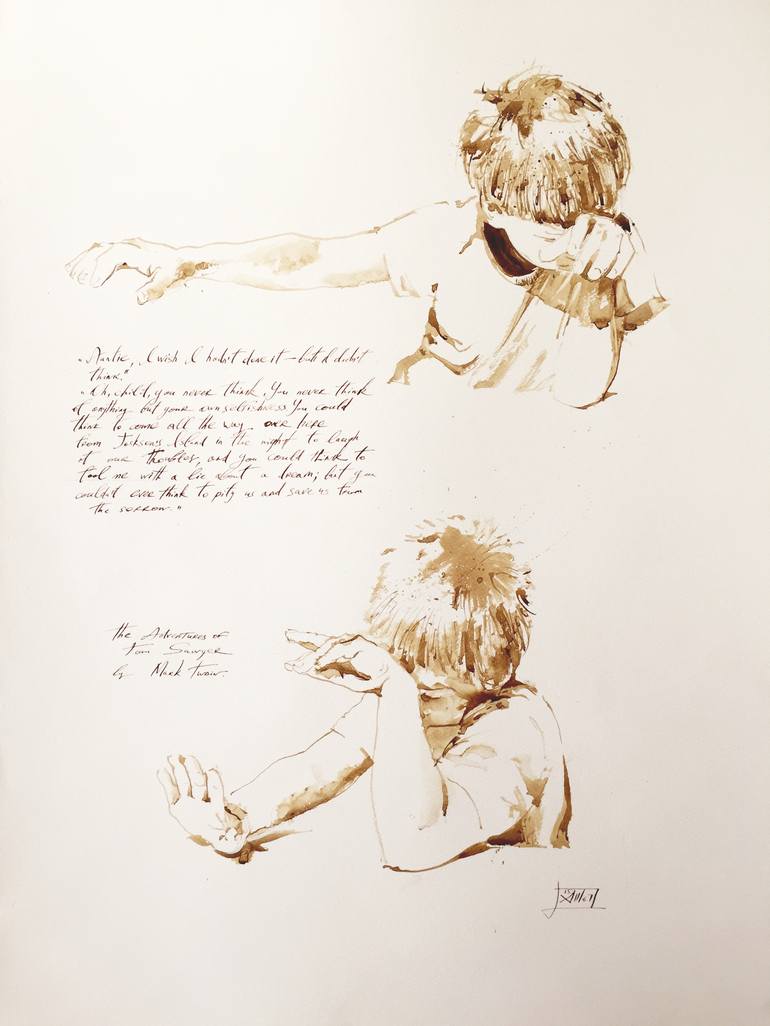 „Auntie, I wish I hadn't done it – but I didn't
think."
„Oh, child, you never think. You never think
of anything but your own selfishness You could
think to come all the way over here
from Jackson's Island in the night to laugh
at our troubles, and you could think to
fool me with a lie about a dream; but you
couldn't ever think to pity us and save us from
the sorrow."
the Adventures of
Tom Sawyer
by Mark Twain.